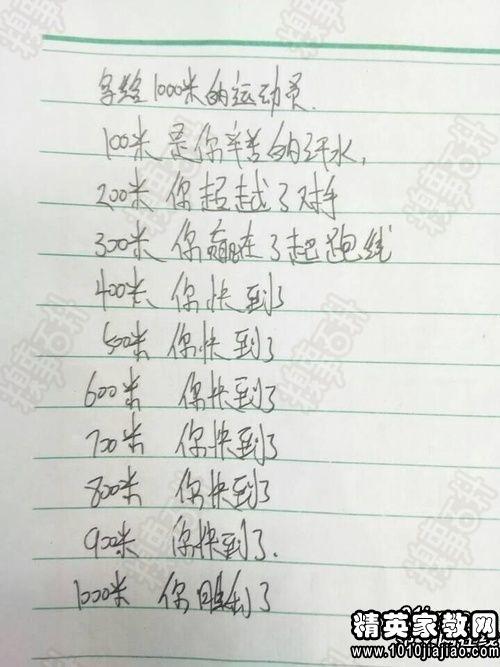 写给1000米的运动员.
100米 是你辛苦的汗水,
200米 你超越了对手
300米 你赢在了起跑线
400米 你快到了
500米 你快到了
600米 你快到了
700米 你快到了
800米 你快到了
900米 你快到了.
1000米 你胜利了
糗事百科
精英家教网
www.1010jiajiao.com